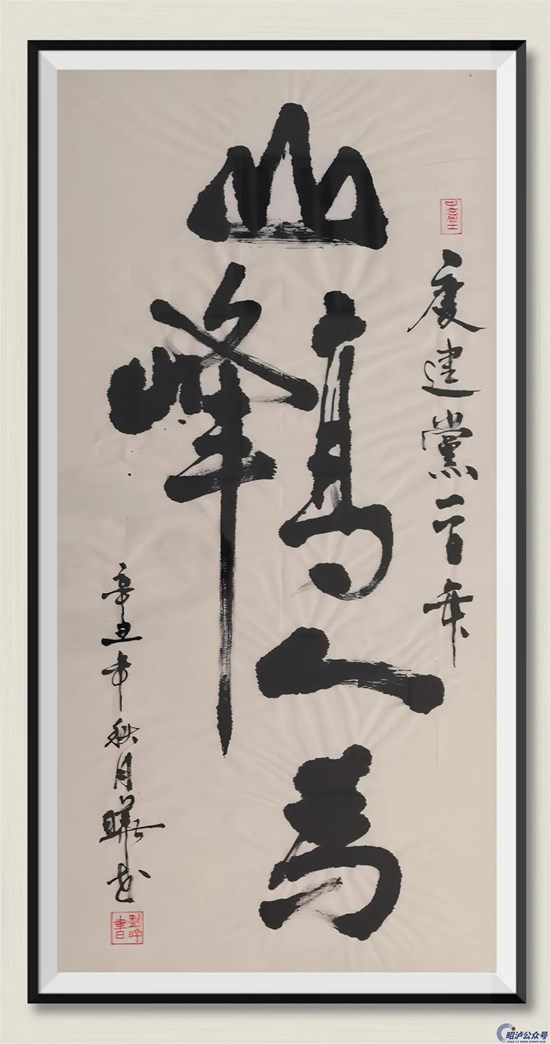 庆建黨一百年
山高人为峰
辛丑年秋月曄书
昭泸公众号